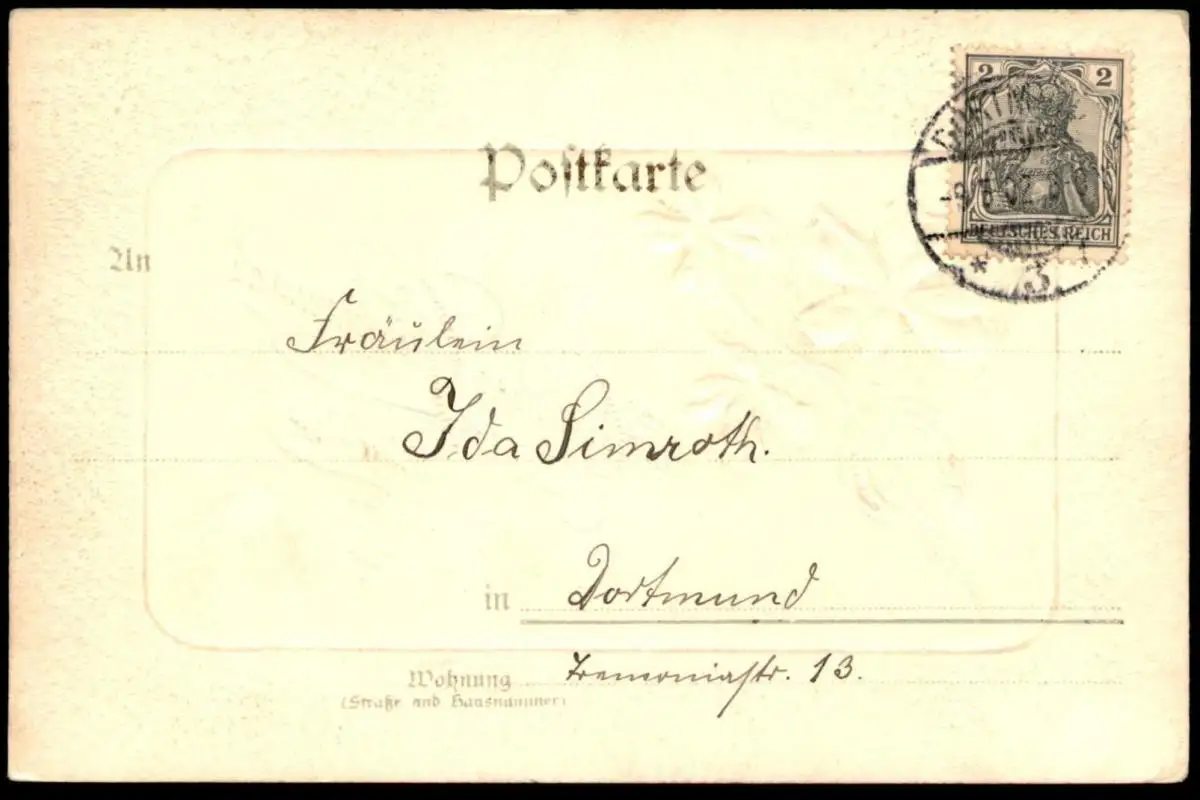 2 2
DEUTSCHES REICH
* 3
Postkarte
An
Fräulein
Ida Simroth.
in Dortmund
Wohnung Tremoniastr. 13.
(Straße und Hausnummer)